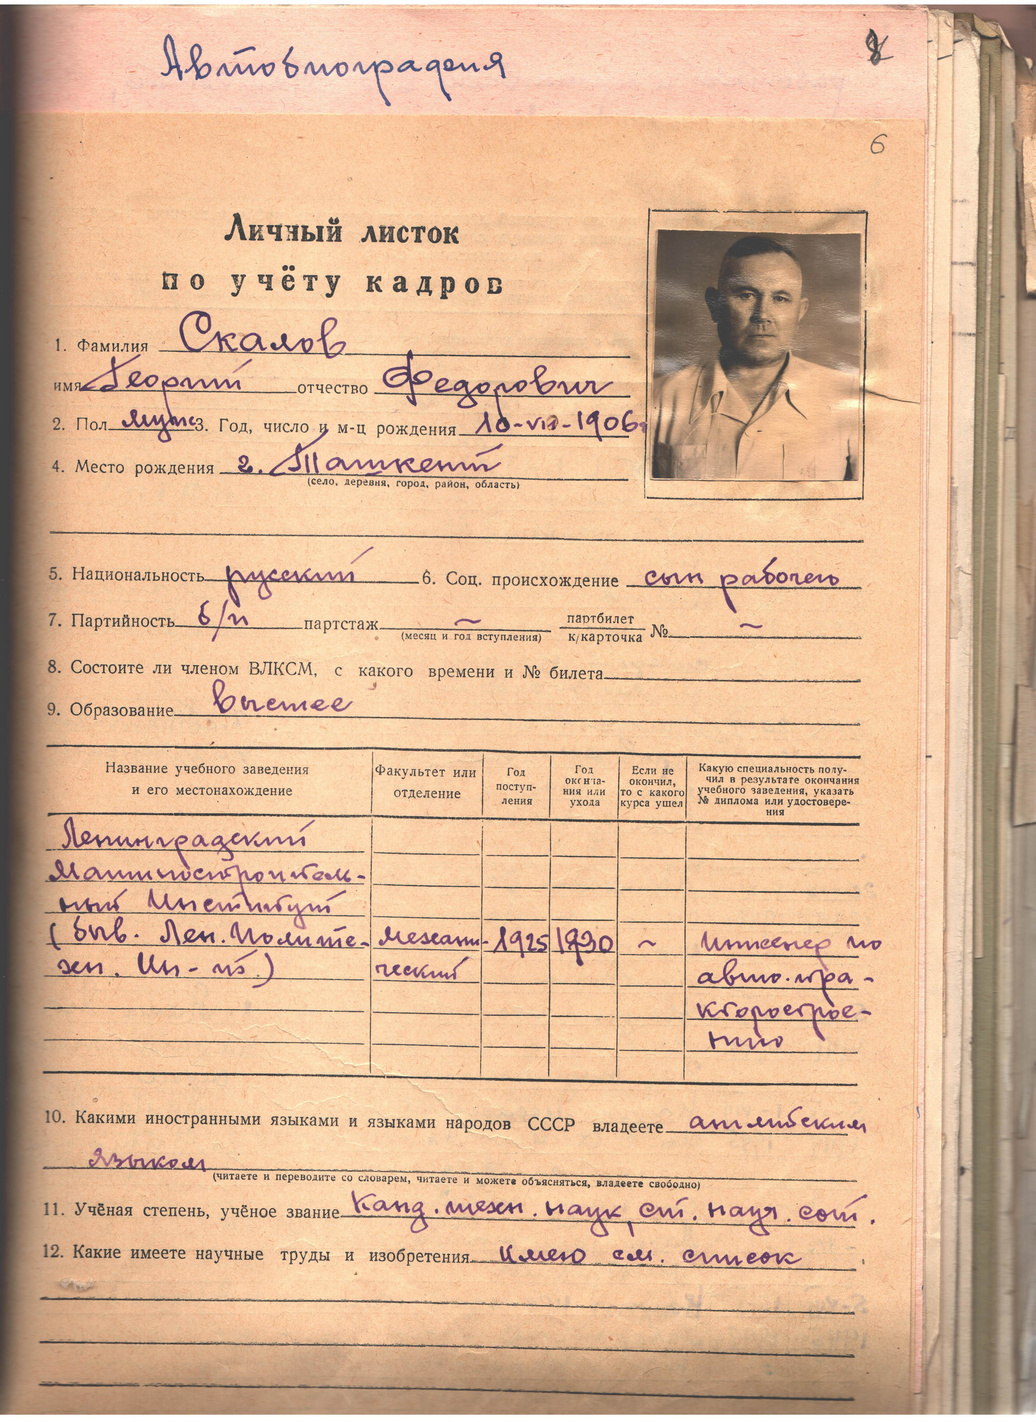 Автобиография
8
6
Личный листок
по учёту кадров
1. Фамилия Скалов
имя Георгий отчество Федорович
2. Пол муж 3. Год, число и м-ц рождения 10-VII-1906г
4. Место рождения г. Ташкент
(село, деревня, город, район, область)
5. Национальность русский 6. Соц. происхождение сын рабочего
7. Партийность б/п партстаж ~ партбилет
к/карточка № ~
(месяц и год вступления)
8. Состоите ли членом ВЛКСМ, с какого времени и № билета
9. Образование высшее
Название учебного заведения
и его местонахождение
Факультет или
отделение
Год
поступ-
ления
Год
оконча-
ния или
ухода
Если не
окончил,
то с какого
курса ушел
Какую специальность полу-
чил в результате окончания
учебного заведения, указать
№ диплома или удостовере-
ния
Ленинградский
Машиностроитель-
ный Институт
(быв. Лен. Политe-
хн. Ин-т)
Механи-
ческий
1925
1930
~
Инженер по
авто-тра-
кторострое-
нию
10. Какими иностранными языками и языками народов СССР владеете английским
языком
(читаете и переводите со словарем, читаете и можете объясняться, владеете свободно)
11. Учёная степень, учёное звание Канд. техн. наук, ст. науч. сот.
12. Какие имеете научные труды и изобретения Имею см. список